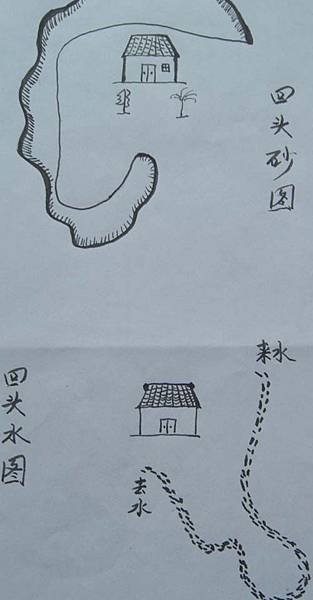 回头砂图
来水
回头水图
去水